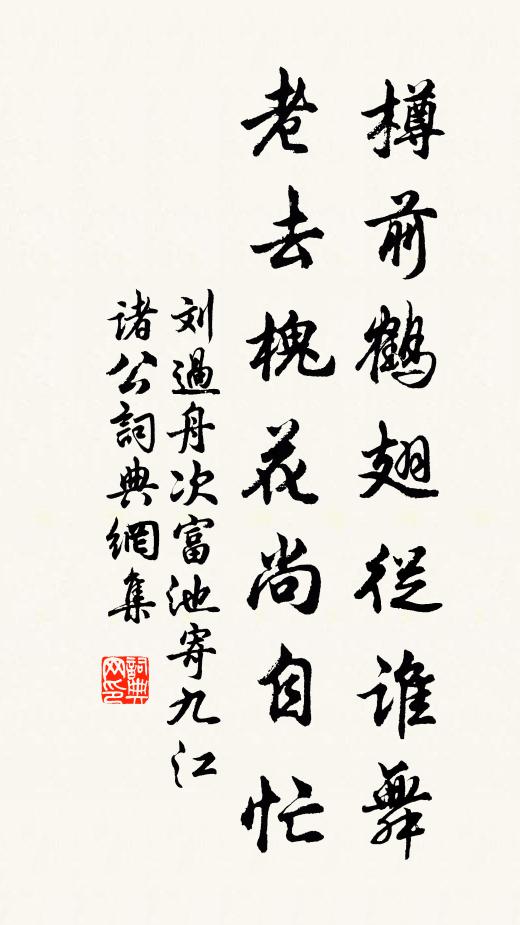 樽前鶴翅從誰舞
老去槐花尚自忙
刘過舟次富池寄九江
諸公詞典網集
詞典網印